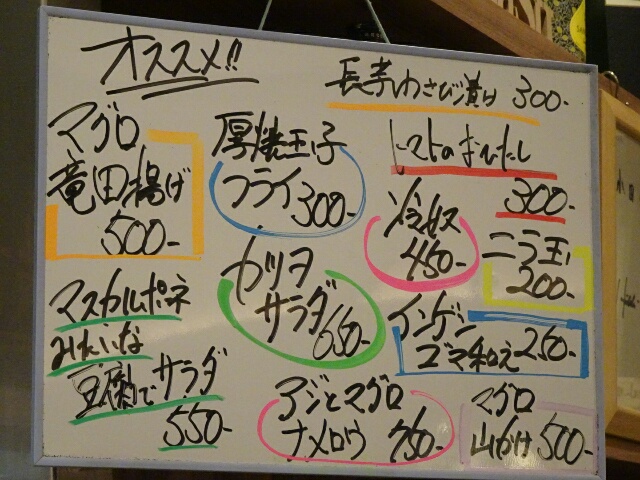 オススメ!!
長芋わさび漬け 300-
マグロ
竜田揚げ
500-
厚焼玉子
フライ 300-
トマトのおひたし
300-
450-
ニラ玉
200-
カツヲ
サラダ 650-
マスカルポネ
みたいな
豆腐でサラダ
550-
インゲン
ゴマ和え 250-
アジとマグロ
ナメロウ 750-
マグロ
山かけ 500-